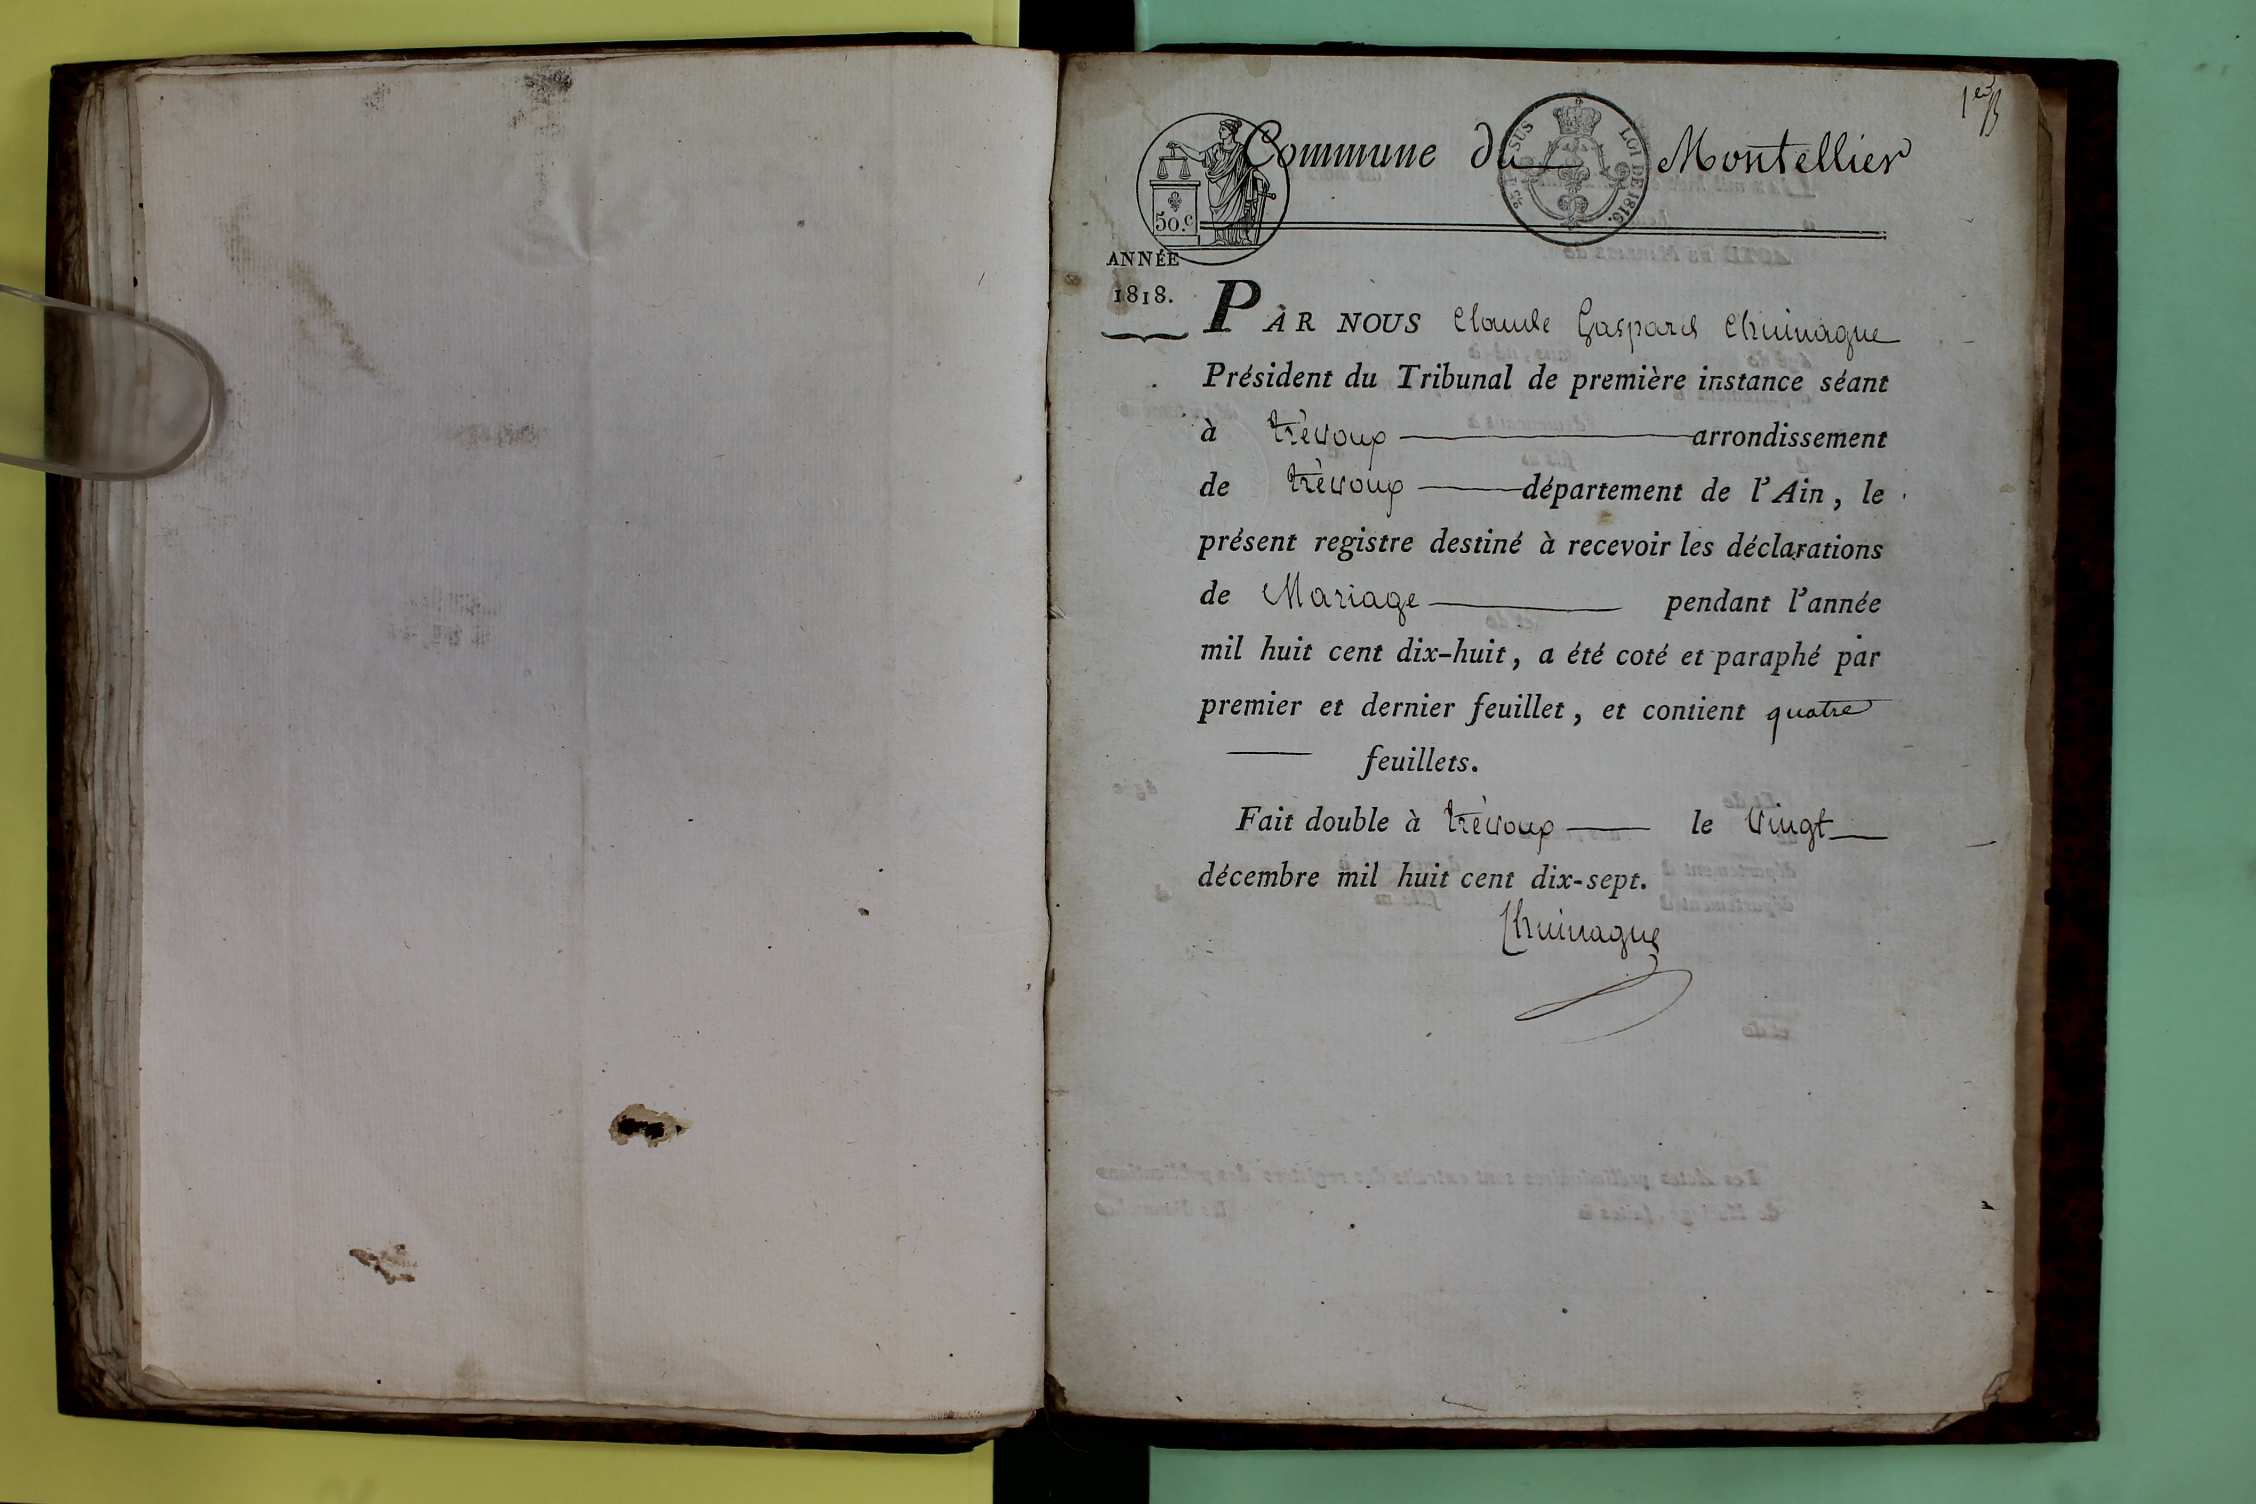 1er
Commune du Montellier
50.c
25 c. EN SUS LOI DE 1816.
ANNÉE
1818.
PAR NOUS Claude Gaspard Chuinague
Président du Tribunal de première instance séant
à trévoux arrondissement
de trévoux département de l'Ain, le
présent registre destiné à recevoir les déclarations
de Mariage pendant l'année
mil huit cent dix-huit, a été coté et paraphé par
premier et dernier feuillet, et contient quatre
feuillets.
Fait double à trévoux le vingt
décembre mil huit cent dix-sept.
Chuinague